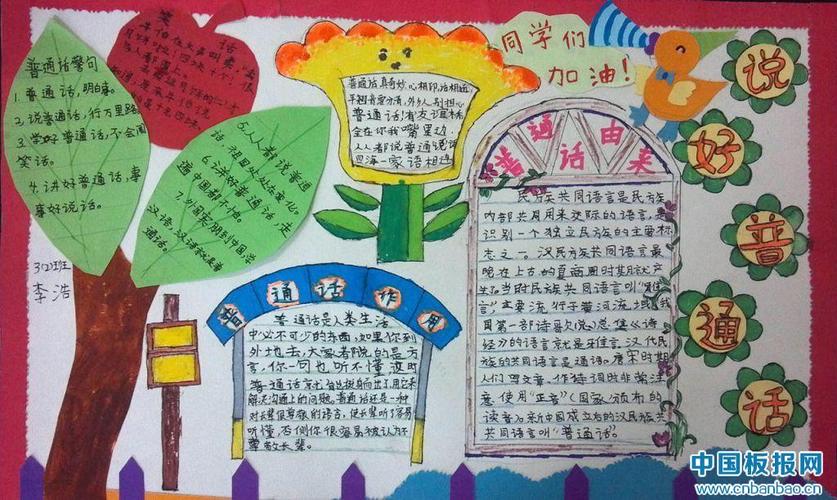 笑话
普通话警句
1. 普通话,明日事。
2. 说普通话,行万里路
3. 学好普通话,不会闹
笑话。
4. 讲好普通话,事
事好说话。
5. 人人都说普通
话 祖国处处在变化。
6. 讲好普通话,走
遍中国都不怕。
汉语,汉语就是普
通话。
312班
李浩
普通话真奇妙,心相印,话相通
普通话!有友谊桥
全在你我嘴里边,
人人都说普通话
四海一家语相通
同学们
加油!
说好普通话
普通话由来
民族共同语言是民族
内部共同用来交际的语言,是
识别一个独立民族的主要标
志之一。汉民族共同语言最
晚在上古的夏商周时期就产
生了当时民族共同语言叫"雅
言",主要流行于黄河流域,我
国第一部诗歌总集《诗
经》的语言就是雅言。汉代民
族的共同语言是通语。唐宋时期
人们写文章、作诗词时非常注
意使用"正音"(国家颁布的
读音)。新中国成立后的汉民族共
共同语言叫"普通话"。
普通话作用
普通话是人类生活
中必不可少的东西,如果你到
外地去,大家都说的是方
言,你一句也听不懂,这时
解决沟通上的问题。普通话还是一种
对长辈很尊敬的语言,使长辈听了容易
听懂,否则你很容易被认为不
尊敬长辈。
中国板报网
www.cnbanbao.cn